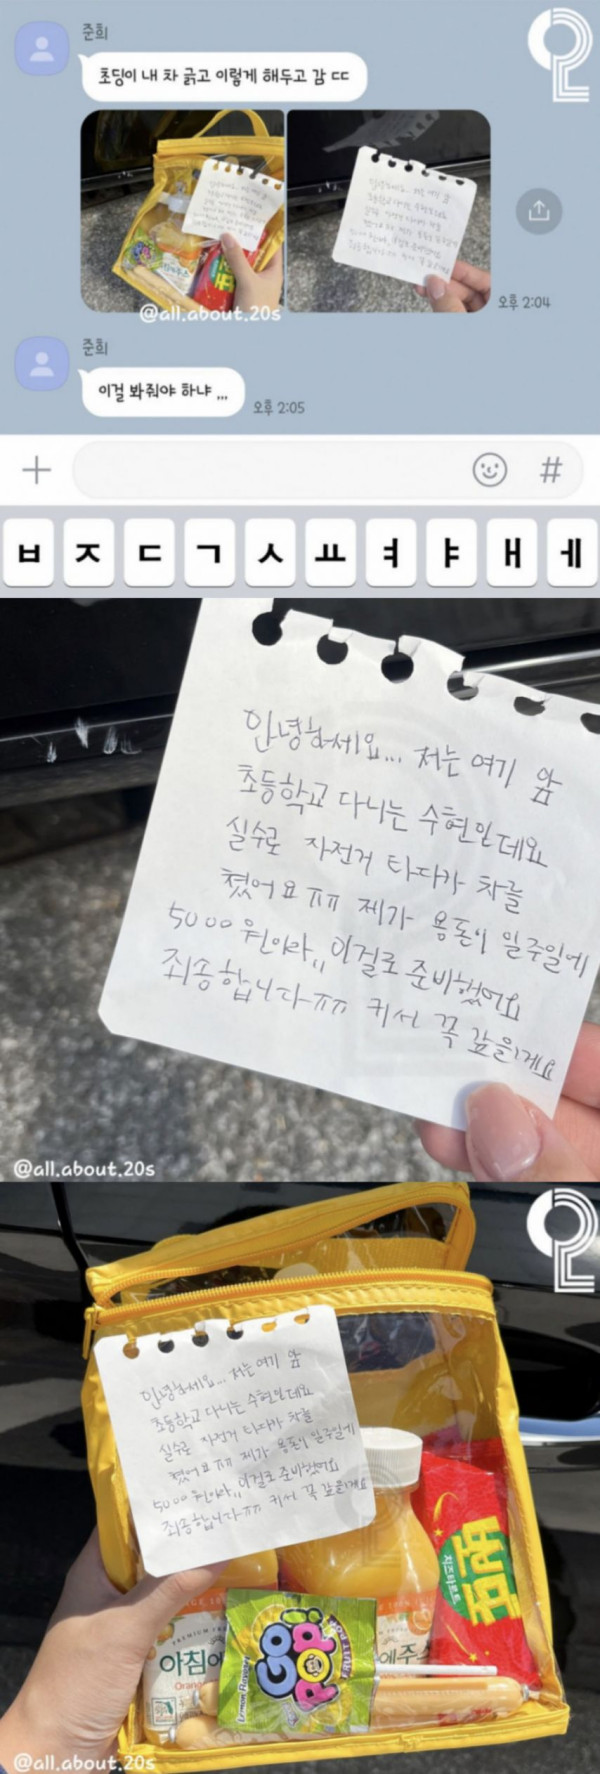 준희
초딩이 내 차 긁고 이렇게 해두고 감 ㄷㄷ
@all.about.20s
오후 2:04
준희
이걸 봐줘야 하냐 ,,,
오후 2:05
#
ㅂ ㅈ ㄷ ㄱ ㅅ ㅛ ㅕ ㅑ ㅐ ㅔ
안녕하세요... 저는 여기 앞
초등학교 다니는 수현인데요
실수로 자전거 타다가 차를
쳤어요 ㅠㅠ 제가 용돈이 일주일에
5000원이라,, 이걸로 준비했어요
죄송합니다ㅠㅠ 커서 꼭 갚을게요
@all.about.20s
안녕하세요... 저는 여기 앞
초등학교 다니는 수현인데요
실수로 자전거 타다가 차를
쳤어요 ㅠㅠ 제가 용돈이 일주일에
5000원이라,, 이걸로 준비했어요
죄송합니다ㅠㅠ 커서 꼭 갚을게요
치즈타르트
아침에
Orang
에주스
Lemon Flavor
GO
POP!
@all.about.20s